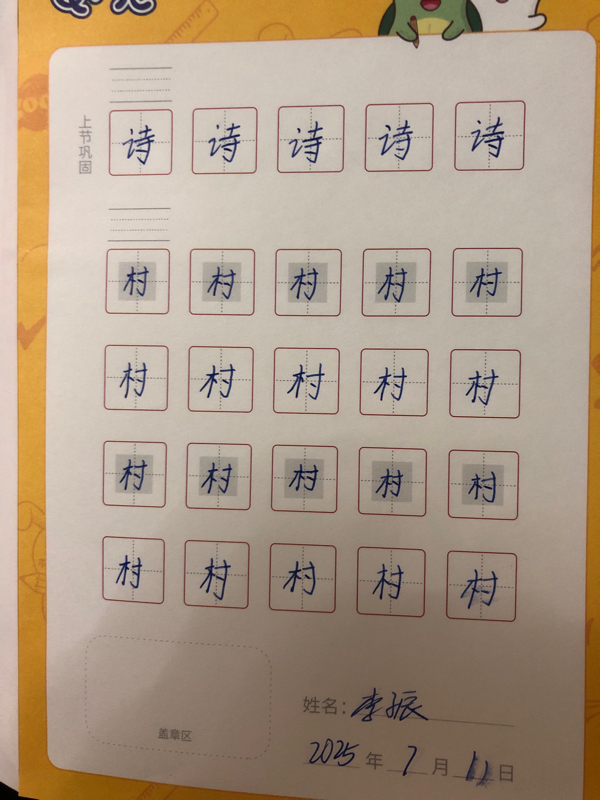 上节巩固
诗 诗 诗 诗 诗
村 村 村 村 村
村 村 村 村 村
村 村 村 村 村
村 村 村 村 村
姓名：李振
盖章区
2025年7月11日